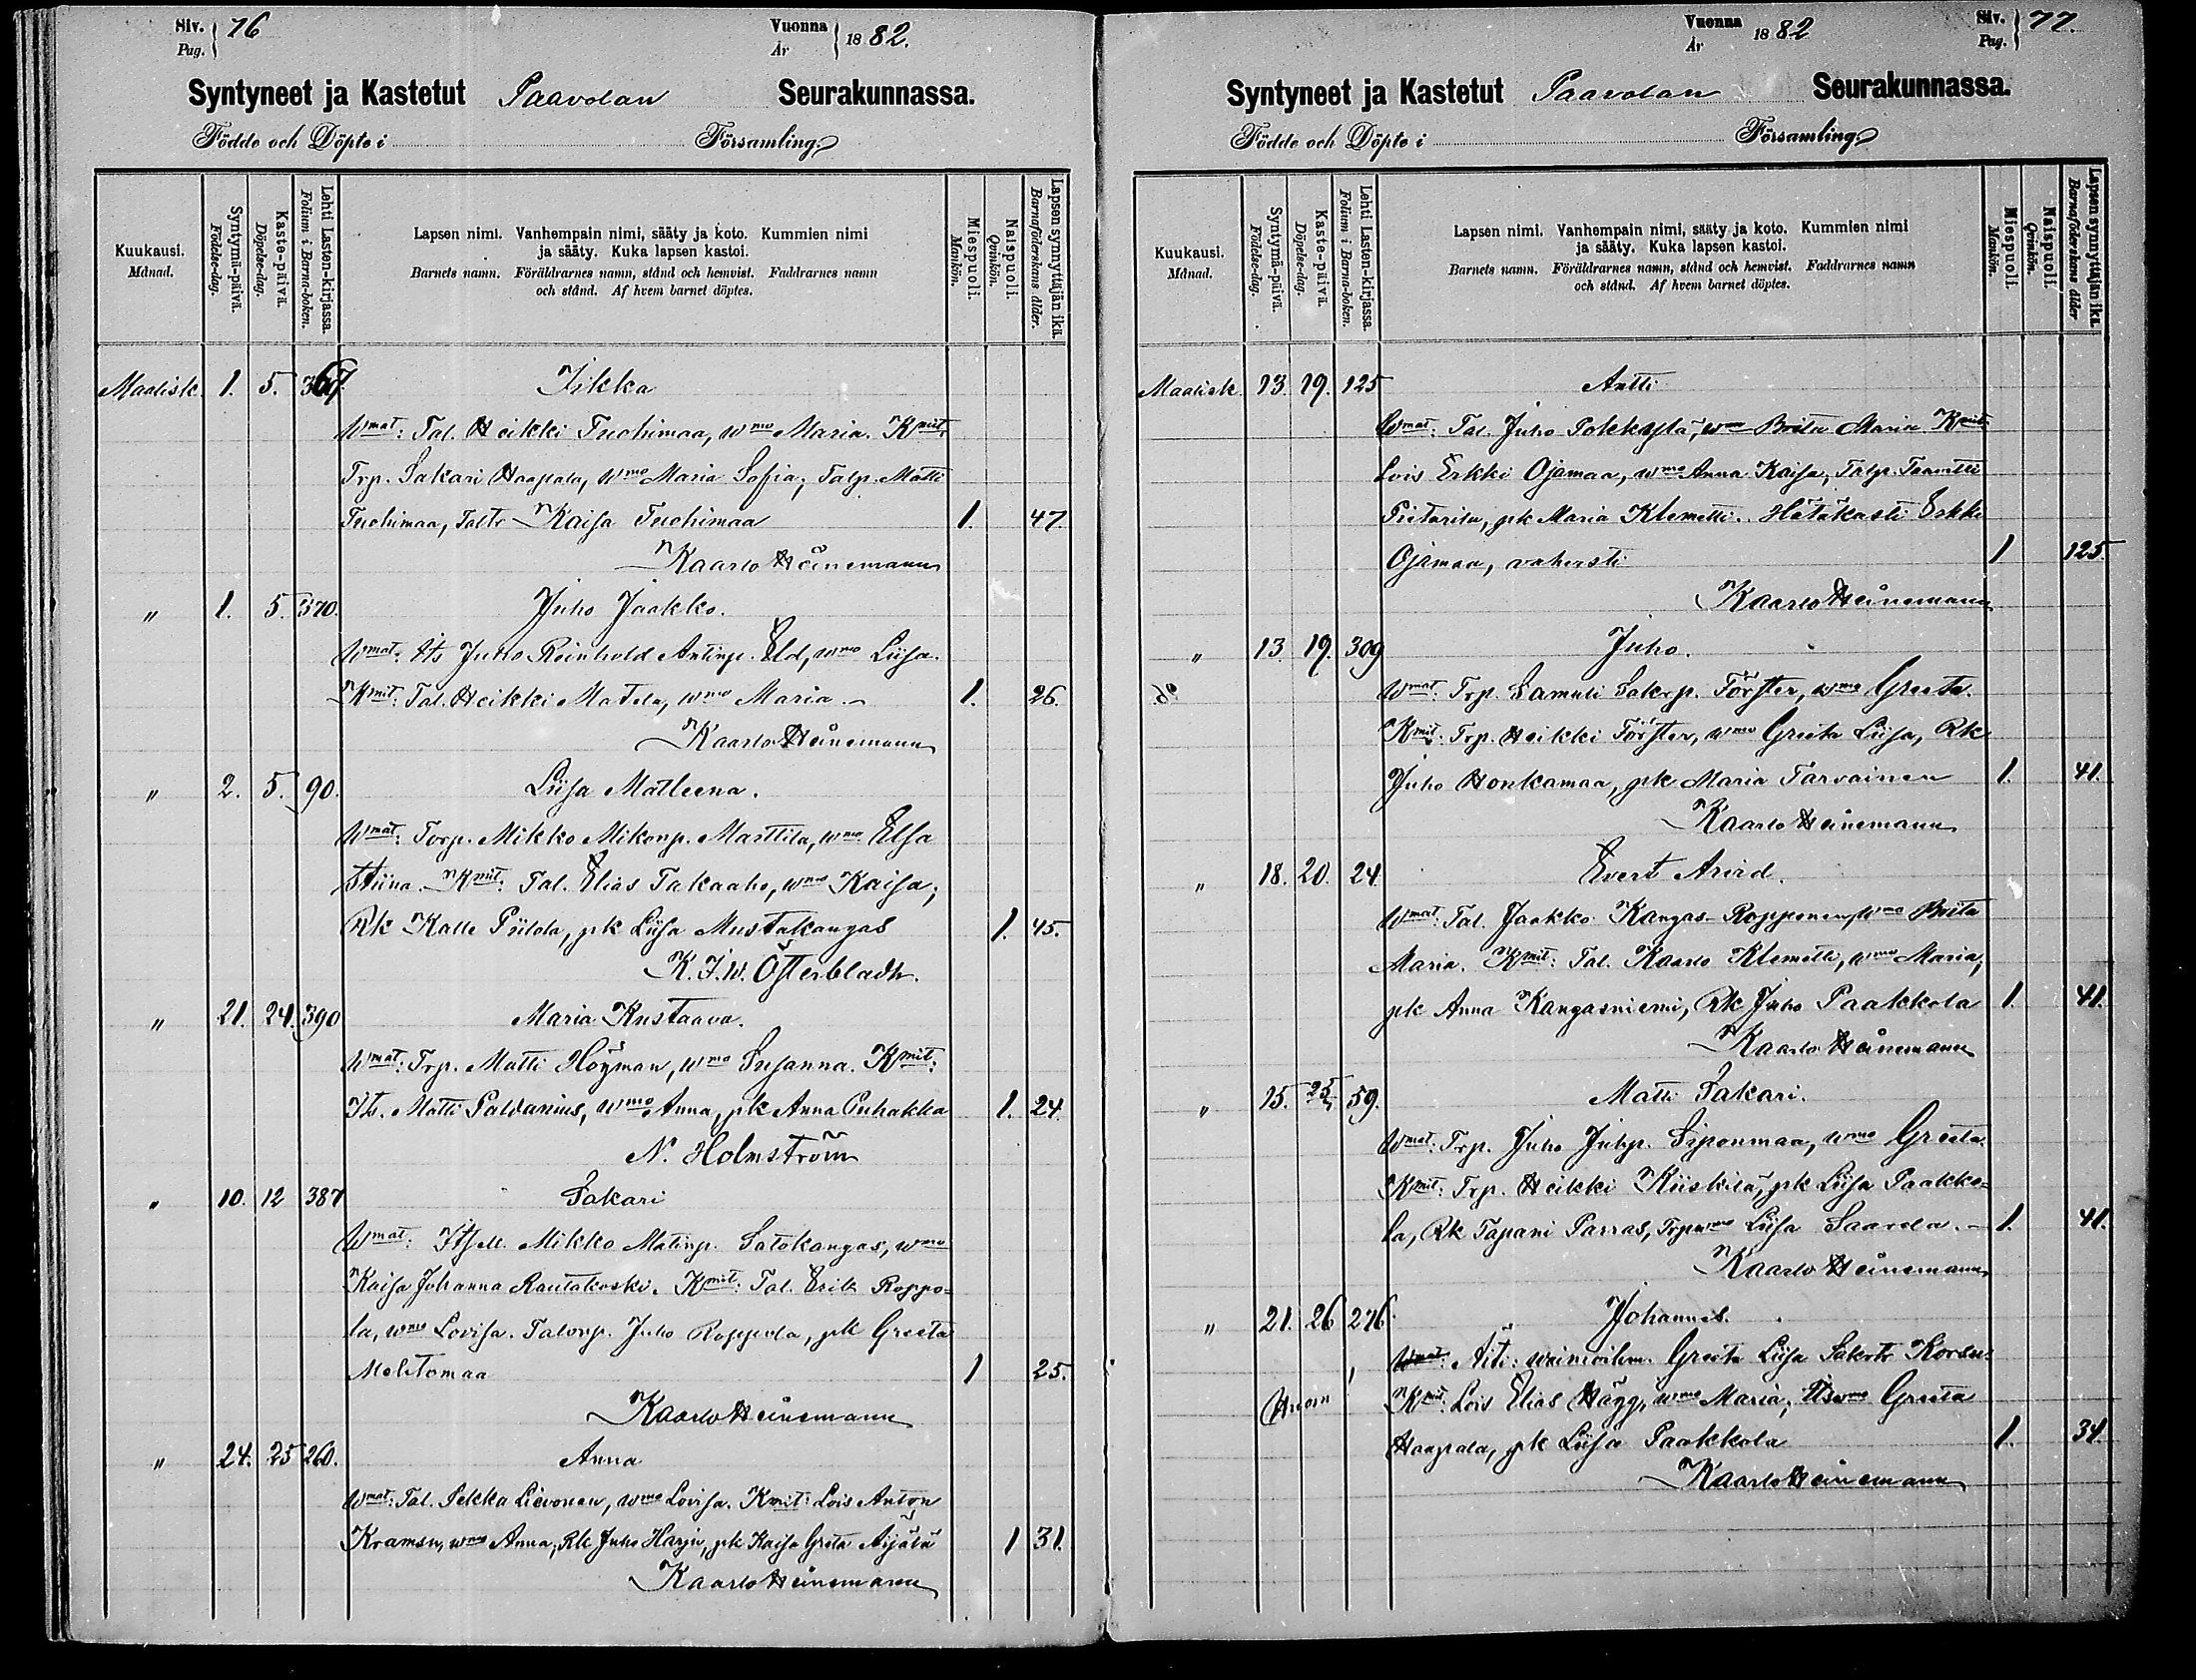 Siv. Pag. 76
Vuonna År 1882.
Syntyneet ja Kastetut Paavolan Seurakunnassa.
Födde och Döpte i Församling.
Kuukausi. Månad.
Syntymä-päivä. Födelse-dag.
Kaste-päivä. Döpelse-dag.
Lehti Lasten-kirjassa. Folium i Barna-boken.
Lapsen nimi. Vanhempain nimi, sääty ja koto. Kummien nimi
ja sääty. Kuka lapsen kastoi.
Barnets namn. Föräldrarnes namn, stånd och hemvist. Faddrarnes namn
och stånd. Af hvem barnet döptes.
Miespuoli. Mankön.
Naispuoli. Qvinkön.
Lapsen synnyttäjän ikä. Barnaföderskans ålder.
Maalisk. 1. 5. 367 Iikka
Wmat: Tal. Heikki Tuohimaa, wmo Maria. Kmit:
Trp. Sakari Haapala, wmo Maria Sofia; Talp. Matti
Tuohimaa, Taltr Kaisa Tuohimaa 1. 47.
Kaarlo Heinemann
" 1. 5. 370. Juho Jaakko.
Wmat: Its Juho Reinhold Antinp. Eld, wmo Liisa.
Kmit: Tal. Heikki Matela, wmo Maria 1. 26.
Kaarlo Heinemann
" 2. 5. 90. Liisa Matleena.
Wmat: Torp. Mikko Mikonp. Marttila, wmo Elsa
Stiina. Kmit: Tal. Elias Takaaho, wmo Kaisa;
Rk Kalle Piilola, pk Liisa Mustakangas 1. 45.
K. J. W. Österbladh.
" 21. 24. 390 Maria Kustaava.
Wmat: Trp. Matti Höyman, wmo Susanna. Kmit:
Its. Matti Paldanius, wmo Anna, pk Anna Puhakka 1. 24.
N. Holmström
" 10. 12 387 Sakari
Wmat: Itsell. Mikko Matinp. Satokangas, wmo
Kaisa Johanna Rautakoski. Kmit: Tal. Erik Roppo=
la, wmo Lovisa. Talonp. Juho Roppola, pk Greeta
Mehtomaa 1 25.
Kaarlo Heinemann
" 24. 25 260. Anna
Wmat: Tal. Pekka Lievonen, wmo Lovisa. Kmit: Lois Anton
Kramsu, wmo Anna, Rk Juho Harju, pk Kaisa Greta Äijälä 1 31.
Kaarlo Heinemann
Vuonna År 1882
Siv. Pag. 77.
Syntyneet ja Kastetut Paavolan Seurakunnassa.
Födde och Döpte i Församling.
Kuukausi. Månad.
Syntymä-päivä. Födelse-dag.
Kaste-päivä. Döpelse-dag.
Lehti Lasten-kirjassa. Folium i Barna-boken.
Lapsen nimi. Vanhempain nimi, sääty ja koto. Kummien nimi
ja sääty. Kuka lapsen kastoi.
Barnets namn. Föräldrarnes namn, stånd och hemvist. Faddrarnes namn
och stånd. Af hvem barnet döptes.
Miespuoli. Mankön.
Naispuoli. Qvinkön.
Lapsen synnyttäjän ikä. Barnaföderskans ålder
Maalisk 13. 19. 125 Antti
Wmat: Tal. Juho Pokkyla, wmo Brita Maria Kmit
Lois Erkki Ojamaa, wmo Anna Kaisa, Talp. Taavitti
Pietarila, pk Maria Klemetti. Hätäkasti Erkki
Ojamaa, vahvisti 1 125.
Kaarlo Heinemann
" 13. 19. 309 Juho.
Wmat: Trp. Samuli Sakrp. Förster, wmo Greeta.
Kmit: Trp. Heikki Förster, wmo Greeta Liisa, Rk
Juho Honkamaa, pk Maria Tarvainen 1. 41.
Kaarlo Heinemann
" 18. 20. 24 Evert Arvid.
Wmat: Tal. Jaakko Kangas-Ropponen, wmo Brita
Maria. Kmit: Tal. Kaarlo Klemetti, wmo Maria;
pk Anna Kangasniemi, Rk Juho Paakkola 1. 41.
Kaarlo Heinemann
" 15. 25. 59. Matti Sakari.
Wmat: Trp. Juho Juhp. Siponmaa, wmo Greeta.
Kmit: Trp. Heikki Kiiskilä, pk Liisa Paakko=
la, Rk Tapani Parras, Trpnwmo Liisa Saarela. 1. 41.
Kaarlo Heinemann
" 21. 26 276. Johannes.
Wmat: Äiti: Greeta Liisa Sakrtr
Kmit: Lois Elias Hägg, wmo Maria; Itswmo Greeta
Haapala, pk Liisa Paakkola 1. 34.
Kaarlo Heinemann